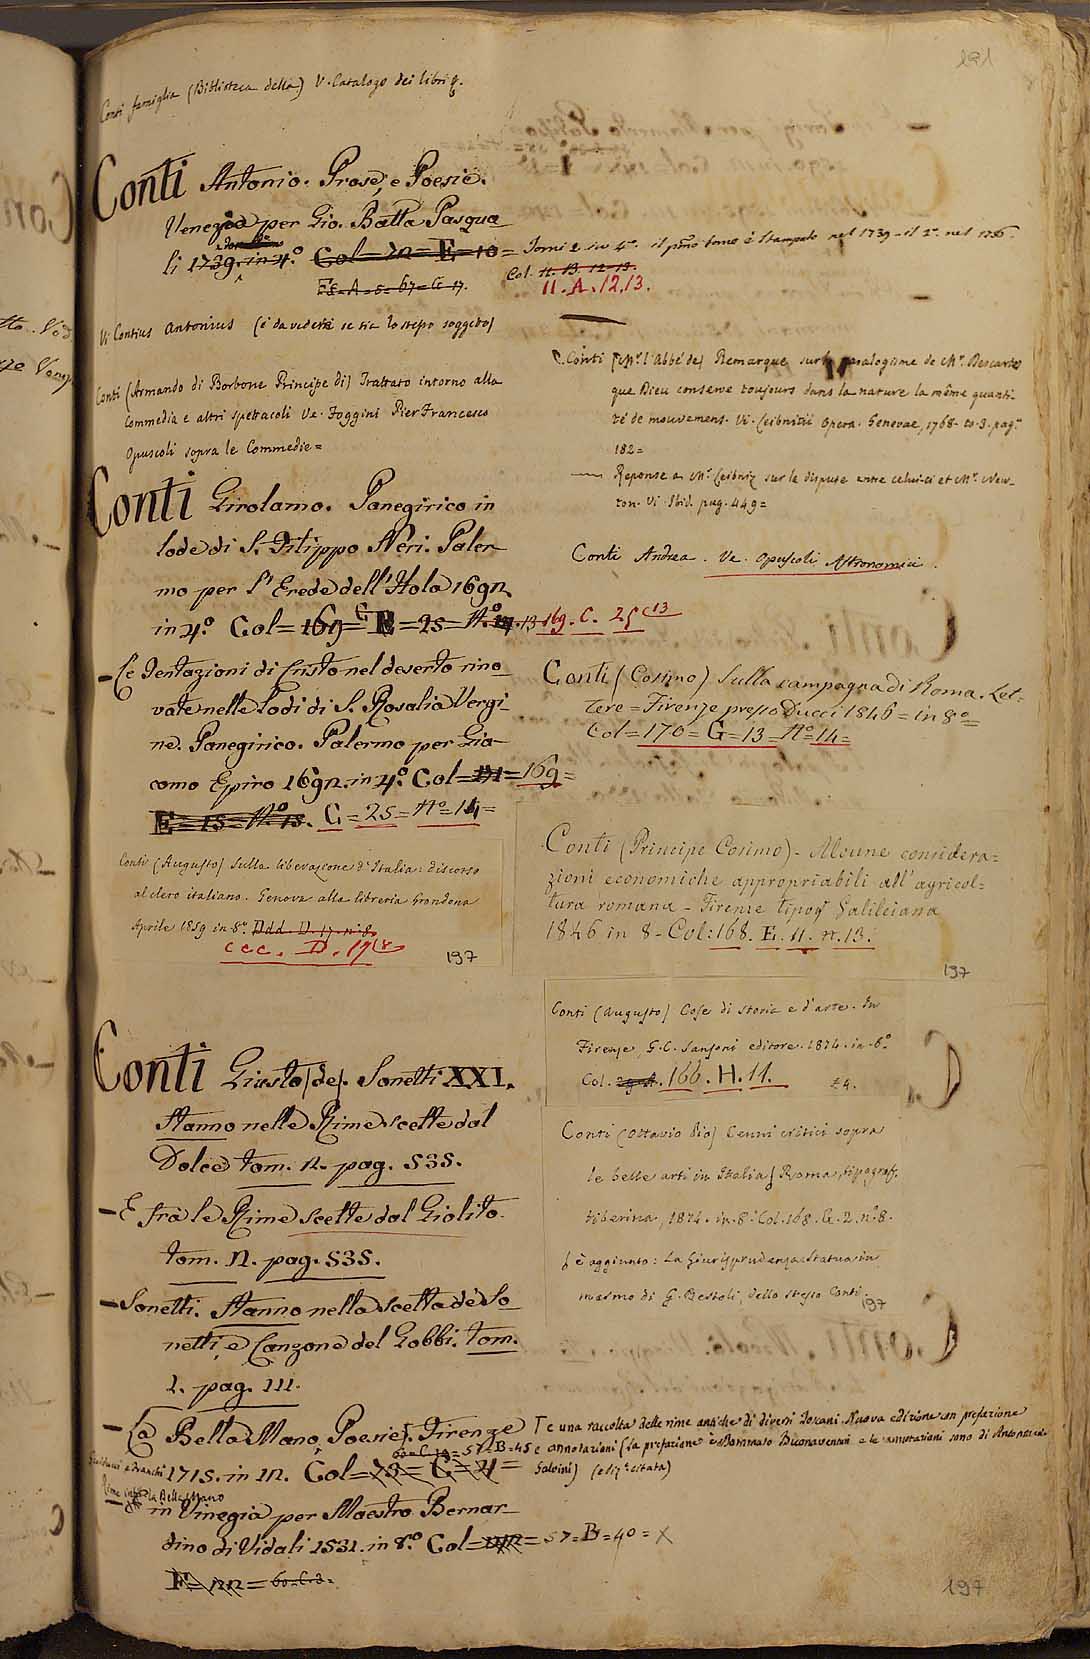 191
Conti famiglia (Biblioteca della) V. Catalogo dei libri
Conti Antonio. Prose, e Poesie.
Venezia per Gio. Batta Pasqua
li 1739. in 4.° Col = = E = 10 = Tomi 2. in 4.° il pmo tomo è stampato nel 1739 - il 2.° nel 1756.
Col. 11. B. 12. 13.
11. A. 12. 13.
Vi Contius Antonius (è da vedersi se sia lo stesso soggetto)
Conti (Armando di Borbone Principe di) Trattato intorno alla
Commedia e altri spettacoli Ve. Foggini Pier Francesco
Opuscoli sopra le Commedie =
Conti Girolamo. Panegirico in
lode di S. Filippo Neri. Paler
mo per l'Erede dell'Isola 1692
in 4.° Col = 169 = G = 25 = N.° 13 169. C. 25 13
- Le Tentazioni di Cristo nel deserto rino
vate nelle Lodi di S. Rosalia Vergi
ne. Panegirico. Palermo per Gia
como Epiro 1692. in 4.° Col = = 169 =
E = 15 = N.° 15. C = 25 = N.° 14 =
Conti (Augusto) Sulla liberazione d'Italia: discorso
al clero italiano. Genova alla libreria Grondona
Aprile 1859 in 8.° Ddd. D. 17. n.° 8.
CCC. D. 17 8
197
Conti Giusto (de). Sonetti XXI.
Stanno nelle Rime scelte dal
Dolce tom. 2. pag. 535.
- E fra le Rime scelte dal Giolito.
tom. 2. pag. 535.
- Sonetti. Stanno nella scelta de' So
netti, e Canzone del Gobbi. tom.
1. pag. 111.
- La Bella Mano, Poesie. Firenze
1715. in 12. Col = = C = = 57 = B = 45
la Bella Mano
in Vinegia per Maestro Bernar
dino di Vidali 1531. in 8.° Col = = 57 = B = 40 = X
F = = 60 = C. 3 =
C. Conti (Mr. l'Abbé de) Remarque sur le paralogisme de Mr. Descartes
que Dieu conserve toujours dans la nature la même quanti-
té de mouvemens. Vi. Leibnitii Opera. Genevae, 1768. to. 3. pag.
182 =
Reponse a Mr. Leibniz sur la dispute entre celui-ci et Mr. New-
ton. Vi. Ibid. pag. 449 =
Conti Andrea. Ve. Opuscoli Astronomici.
Conti (Cosimo) Sulla campagna di Roma. Let-
tere = Firenze presso Ducci 1846 = in 8.° =
Col = 170 = G = 13 = N.° 14 =
Conti (Principe Cosimo) - Alcune considera=
zioni economiche appropriabili all'agricol=
tura romana - Firenze tipogr Galileiana
1846 in 8 - Col: 168. E. 11. n. 13.
197
Conti (Augusto) Cose di storia e d'arte. In
Firenze, G. C. Sansoni editore. 1874. in-6.°
Col. 166. H. 11. £4.
Conti (Ottavio Pio) Cenni critici sopra
le belle arti in Italia Roma, tipograf.
tiberina, 1874. in 8.° Col. 168. G. 2. n.° 8.
è aggiunto: La Giurisprudenza Statua in
marmo di G. Bestoli, dello stesso Conti.
197
e una raccolta delle rime antiche di diversi Toscani. Nuova edizione con prefazione
e annotazioni (la prefazione è Bommaso Buonaventuri e le annotazioni sono di Anton
Salvini) (ediz. citata)
197